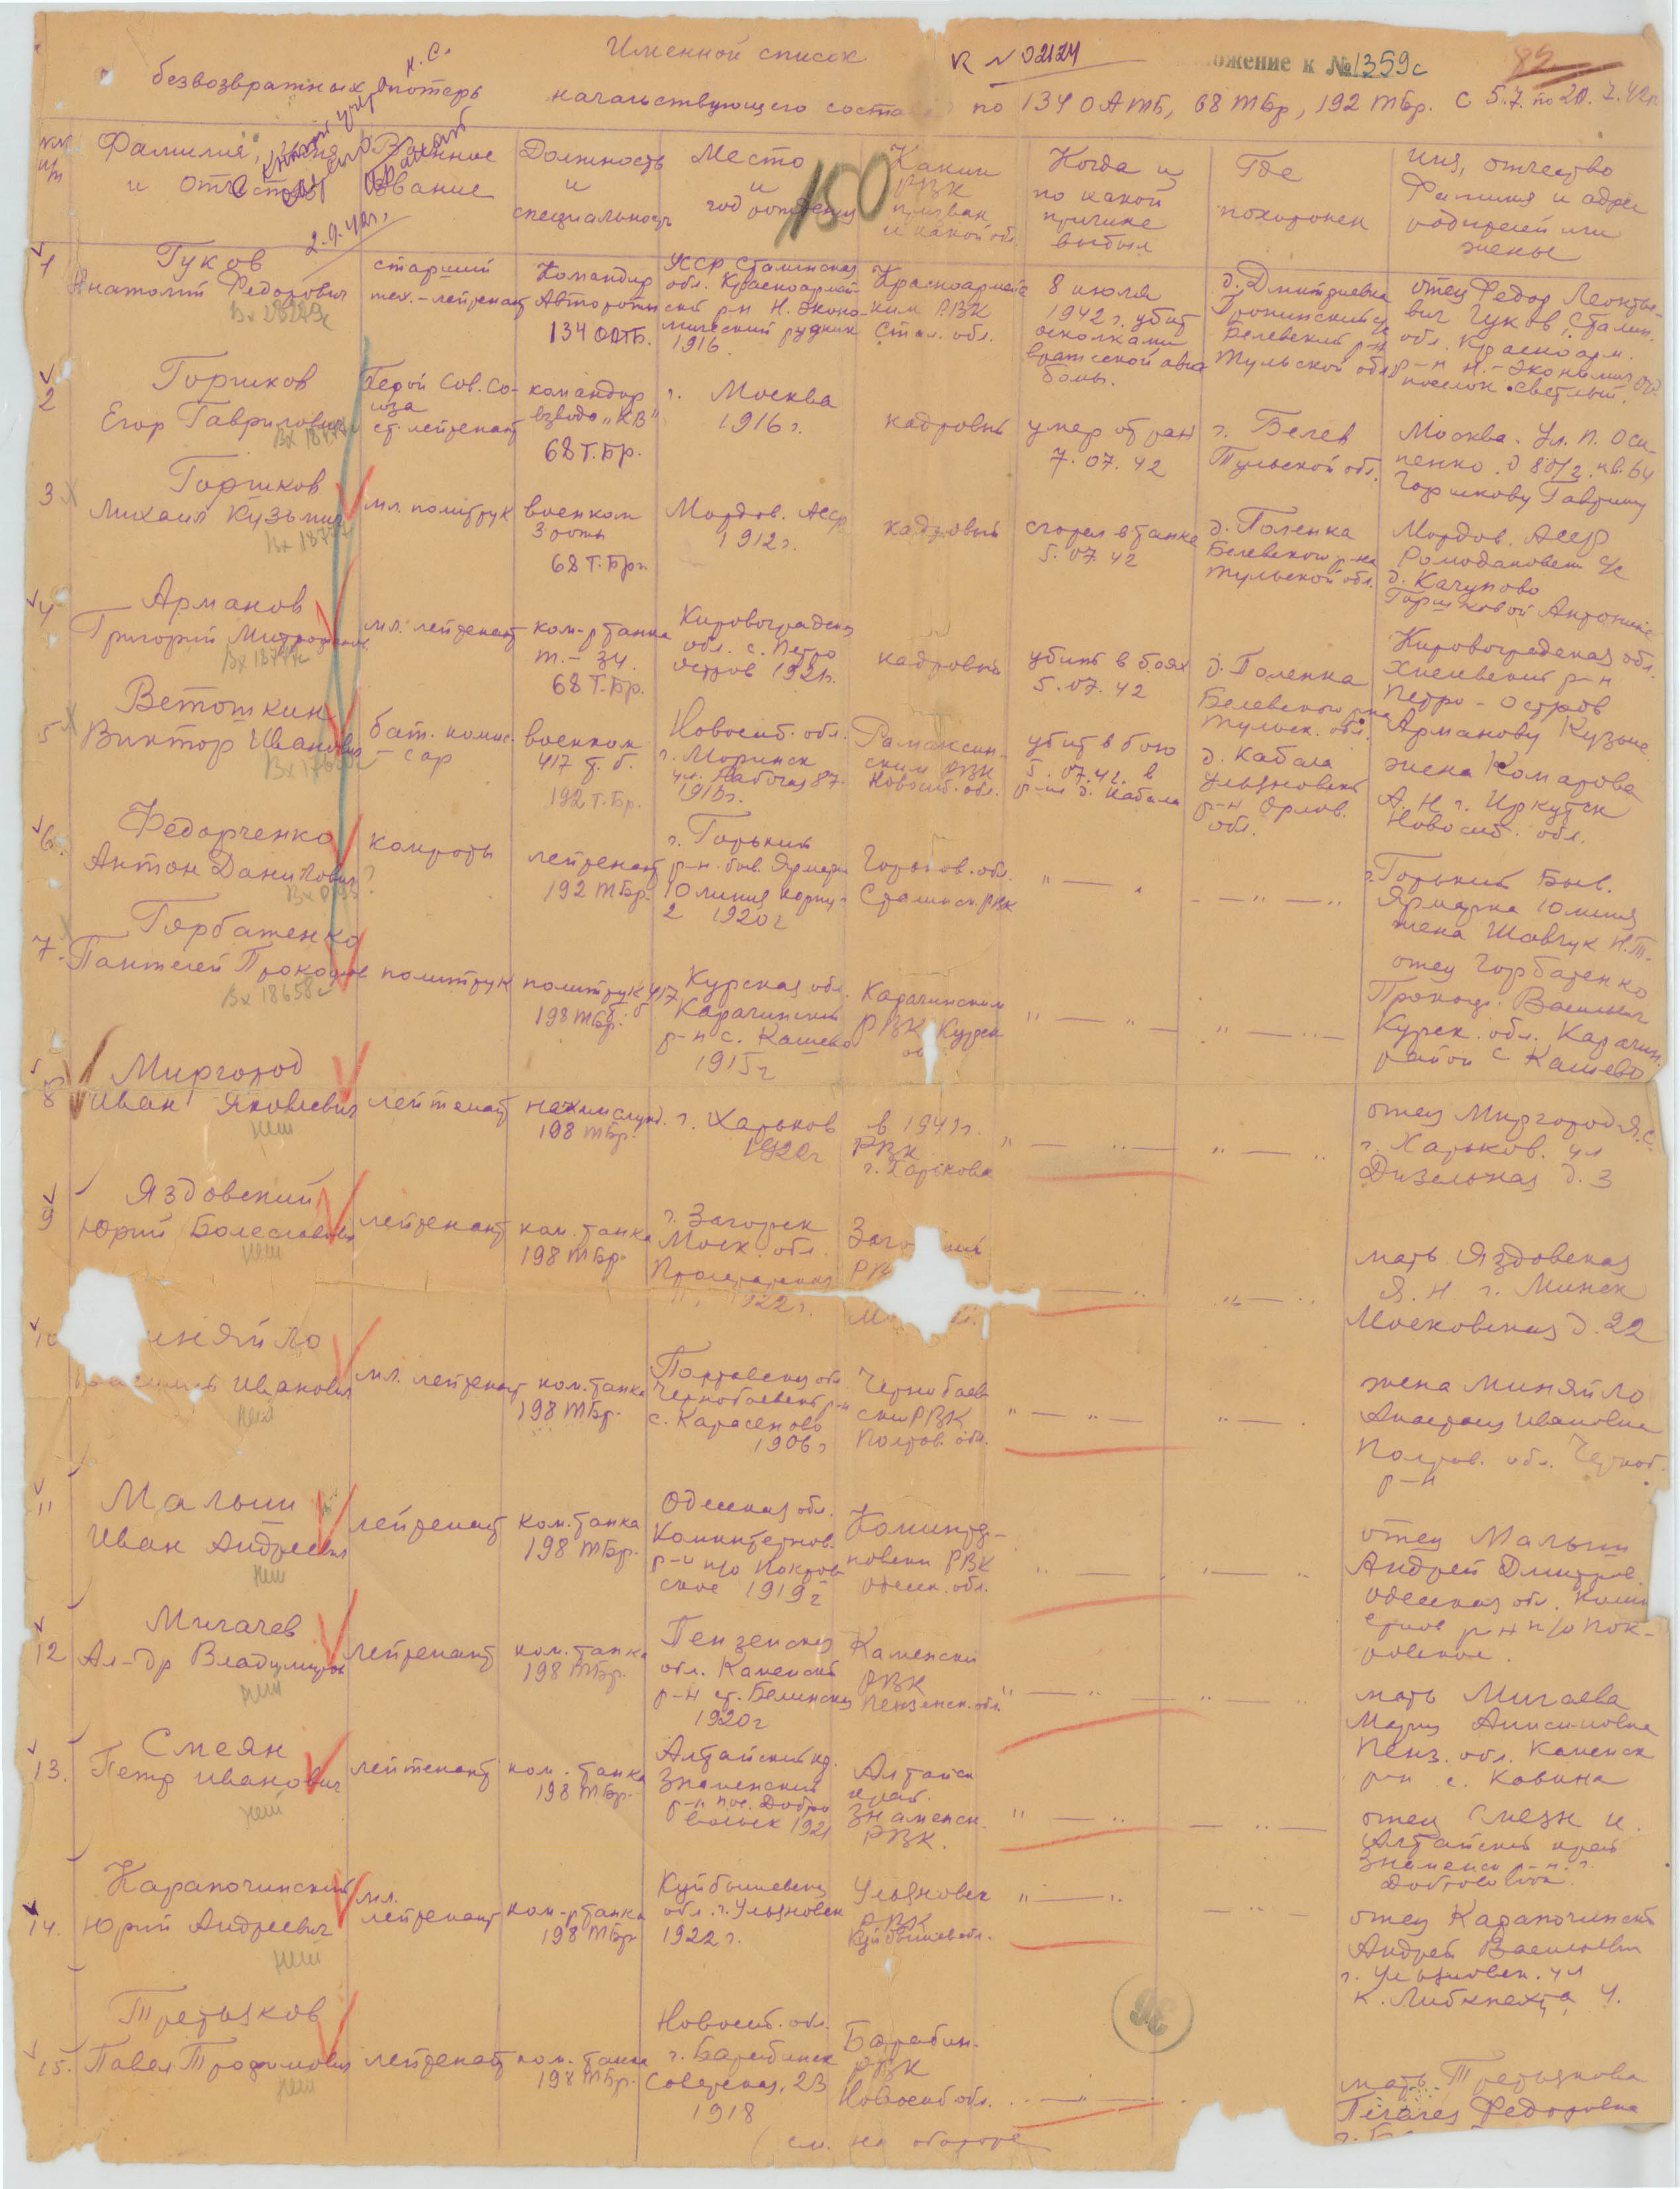 Именной список
R N 02124
ожение к №1359с
безвозвратных потерь начальствующего соста по 134 ОАТБ, 68 ТБр, 192 ТБр. с 5.7. по 20.7.42г
2.9.42г.
150
Фамилия, имя и отчество
Военное звание
Должность и специальность
Место и год рождения
Каким РВК призван и какой обл.
Когда и по какой причине выбыл
Где похоронен
имя, отчество Фамилия и адрес родителей или жены
1
Гуков
Анатолий Федорович
Вх 28279с
старший
тех.-лейтенант
Командир
Автороты
134 ОАТБ.
УССР Сталинская
обл. Красноармей-
ский р-н Н. Эконо-
мический рудник
1916
Красноармейс
ким РВК
Стал. обл.
8 июля
1942 г. убит
осколками
вражеской авиа
бомы.
д. Дмитриевка
Белевский р-н
Тульской обл.
отец Федор Леонтье-
вич Гуков, Сталин.
обл. Красноарм.
р-н Н.-Экономич
поселок Светлый.
2
Горшков
Егор Гаврилович
Герой Сов. Со-
юза
ст. лейтенант
командир
взвода „КВ"
68 Т.Бр.
г. Москва
1916 г.
кадровый
умер от ран
7.07.42
г. Белев
Тульской обл.
Москва. Ул. П. Оси-
пенко д 80/2. кв. 64
Горшкову Гаврилу
3
Горшков
Михаил Кузьмич
мл. политрук
военком
роты
68 Т.Бр.
Мордов. Асср
1912 г.
кадровый
сгорел в танке
5.07.42
д. Поленка
Белевского р-на
Тульской обл.
Мордов. АССР
Ромодановск с/с
д. Качуново
Горшковой Антонине
4
Арманов
Григорий Митрофанов.
мл. лейтенант
ком-р танка
Т.-34.
68 Т.Бр.
Кировоградская
обл. с. Петро
остров 1921г.
кадровый
убит в боях
5.07.42
д. Поленка
Белевского р-на
Тульск. обл.
Кировоградская обл.
р-н
Петро-Остров
Арманову Кузьме
5
Ветошкин
Виктор Иванович
бат. комис-
сар
военком
417 т.б.
192 Т.Бр.
Новосиб. обл.
г. Моринск
ул. Рабочая 87.
Новосиб. обл.
убит в бою
5.07.42. в
р-не д. Кабала
д. Кабала
Ульяновский
р-н Орлов.
обл.
жена Комарова
А. Н г. Иркутск
Новосиб. обл.
6.
Федорченко
Антон Данилович ?
комроты
лейтенант
192 ТБр.
г. Горький
р-н. быв. Ярмарк
10 линия корпус
2 1920г
Горьков. обл.
Сталинск. РВК
" — "
- — " — "
г. Горький Быв.
Ярмарка 10 линия
жена Шовчук Н.Т.
7.
Горбатенко
Пантелей Прокофьев
Вх 18658с
политрук
политрук 417
т б
198 ТБр.
Курская обл.
Карачинский
р-н с. Кашево
1915г
Карачинским
РВК Курск
" — " —
" — "
отец Горбатенко
Прокоф. Васильевич
Курск. обл. Карачин.
район с Кашево
8
Миргород
Иван Яковлевич
нет
лейтенант
198 ТБр.
г. Харьков
1920г
в 1941г.
РВК
г. Харькова
" — " —
" — "
отец Миргород Я.С.
г. Харьков. ул
Дизельная д. 3
9
Яздовский
Юрий Болеславович
нет
лейтенант
ком. танка
198 ТБр.
г. Загорск
Моск. обл.
Пролетарская
1922г.
Заго
РВ
— "
" — "
мать Яздовская
Я. Н г. Минск
Московская д. 22
10
иняйло
Иванович
нет
мл. лейтенант
ком. танка
198 ТБр.
Полтавская обл
Чернобаевский р-н
с. Карасеново
1906г
Чернобаев
ским РВК
Полтав. обл.
" — " —
" — .
жена Миняйло
Анастасия Ивановна
Полтав. обл. Черноб.
р-н
11
Малыш
Иван Андреевич
нет
лейтенант
ком. танка
198 ТБр.
Одесская обл.
Коминтернов.
р-н п/о Покров
ское 1919г
Коминтер-
новским РВК
Одесск. обл.
" — "
" — "
отец Малыш
Андрей Дмитров.
Одесская обл. Коми
тернов р-н п/о Пок-
ровское.
12
Мигачев
Ал-др Владимиров
нет
лейтенант
ком. танка
198 ТБр.
Пензенская
обл. Каменский
р-н ст. Белинская
1920г
Каменски
РВК
Пензенск. обл.
" — " —
" — "
мать Мигаева
Мария Анисимовна
Пенз. обл. Каменск
р-н с. Кевина
13.
Смеян
Петр Иванович
нет
лейтенант
ком. танка
198 ТБр.
Алтайский кр.
Знаменский
р-н пос. Добро
вольск 1921
Алтайск
край.
Знаменск.
РВК.
" — "
— " —
отец Смеян И.
Алтайский край
Знаменск р-н.
Добровольск.
14.
Карапочинский
Юрий Андреевич
нет
мл.
лейтенант
ком-р танка
198 ТБр
Куйбышевская
обл. г. Ульяновск
1922 г.
Ульяновск
РВК
Куйбышев обл.
" — "
— " —
отец Карапочинский
Андрей Васильевич
г. Ульяновск. ул
К. Либкнехта 4.
36
15.
Третьяков
Павел Трофимович
нет
лейтенант
ком. танка
198 ТБр.
Новосиб. обл.
г. Барабинск
Советская, 23
1918
Барабин.
РВК
Новосиб обл.
" — " —
мать Третьякова
Пелагея Федоровна
(см. на обороте